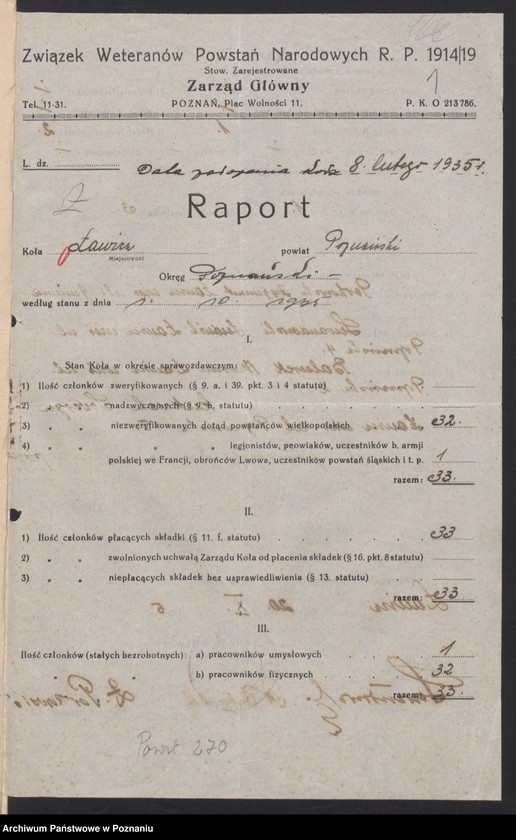 Związek Weteranów Powstań Narodowych R. P. 1914/19
1
Stow. Zarejestrowane
Zarząd Główny
Tel. 11-31. POZNAŃ, Plac Wolności 11. P. K. O 213786.
L. dz. Data założenia koła 8. lutego 1935 r.
Raport
Koła Ławica powiat Poznański
Miejscowość
Okręg Poznański
według stanu z dnia 1. 10. 1935
I.
Stan Koła w okresie sprawozdawczym:
1) Ilość członków zweryfikowanych (§ 9. a i 39. pkt. 3 i 4 statutu)
2) „ „ nadzwyczajnych (§ 9. b, statutu)
3) „ „ niezweryfikowanych dotąd powstańców wielkopolskich 32.
4) „ „ „ legjonistów, peowiaków, uczestników b. armji
polskiej we Francji, obrońców Lwowa, uczestników powstań śląskich i t. p. 1
razem: 33.
II.
1) Ilość członków płacących składki (§ 11. f. statutu) 33
2) „ „ zwolnionych uchwałą Zarządu Koła od płacenia składek (§ 16. pkt. 8 statutu)
3) „ „ niepłacących składek bez usprawiedliwienia (§ 13. statutu)
razem: 33
III.
Ilość członków (stałych bezrobotnych) a) pracowników umysłowych 1
b) pracowników fizycznych 32
razem: 33.
Powst 270
Archiwum Państwowe w Poznaniu